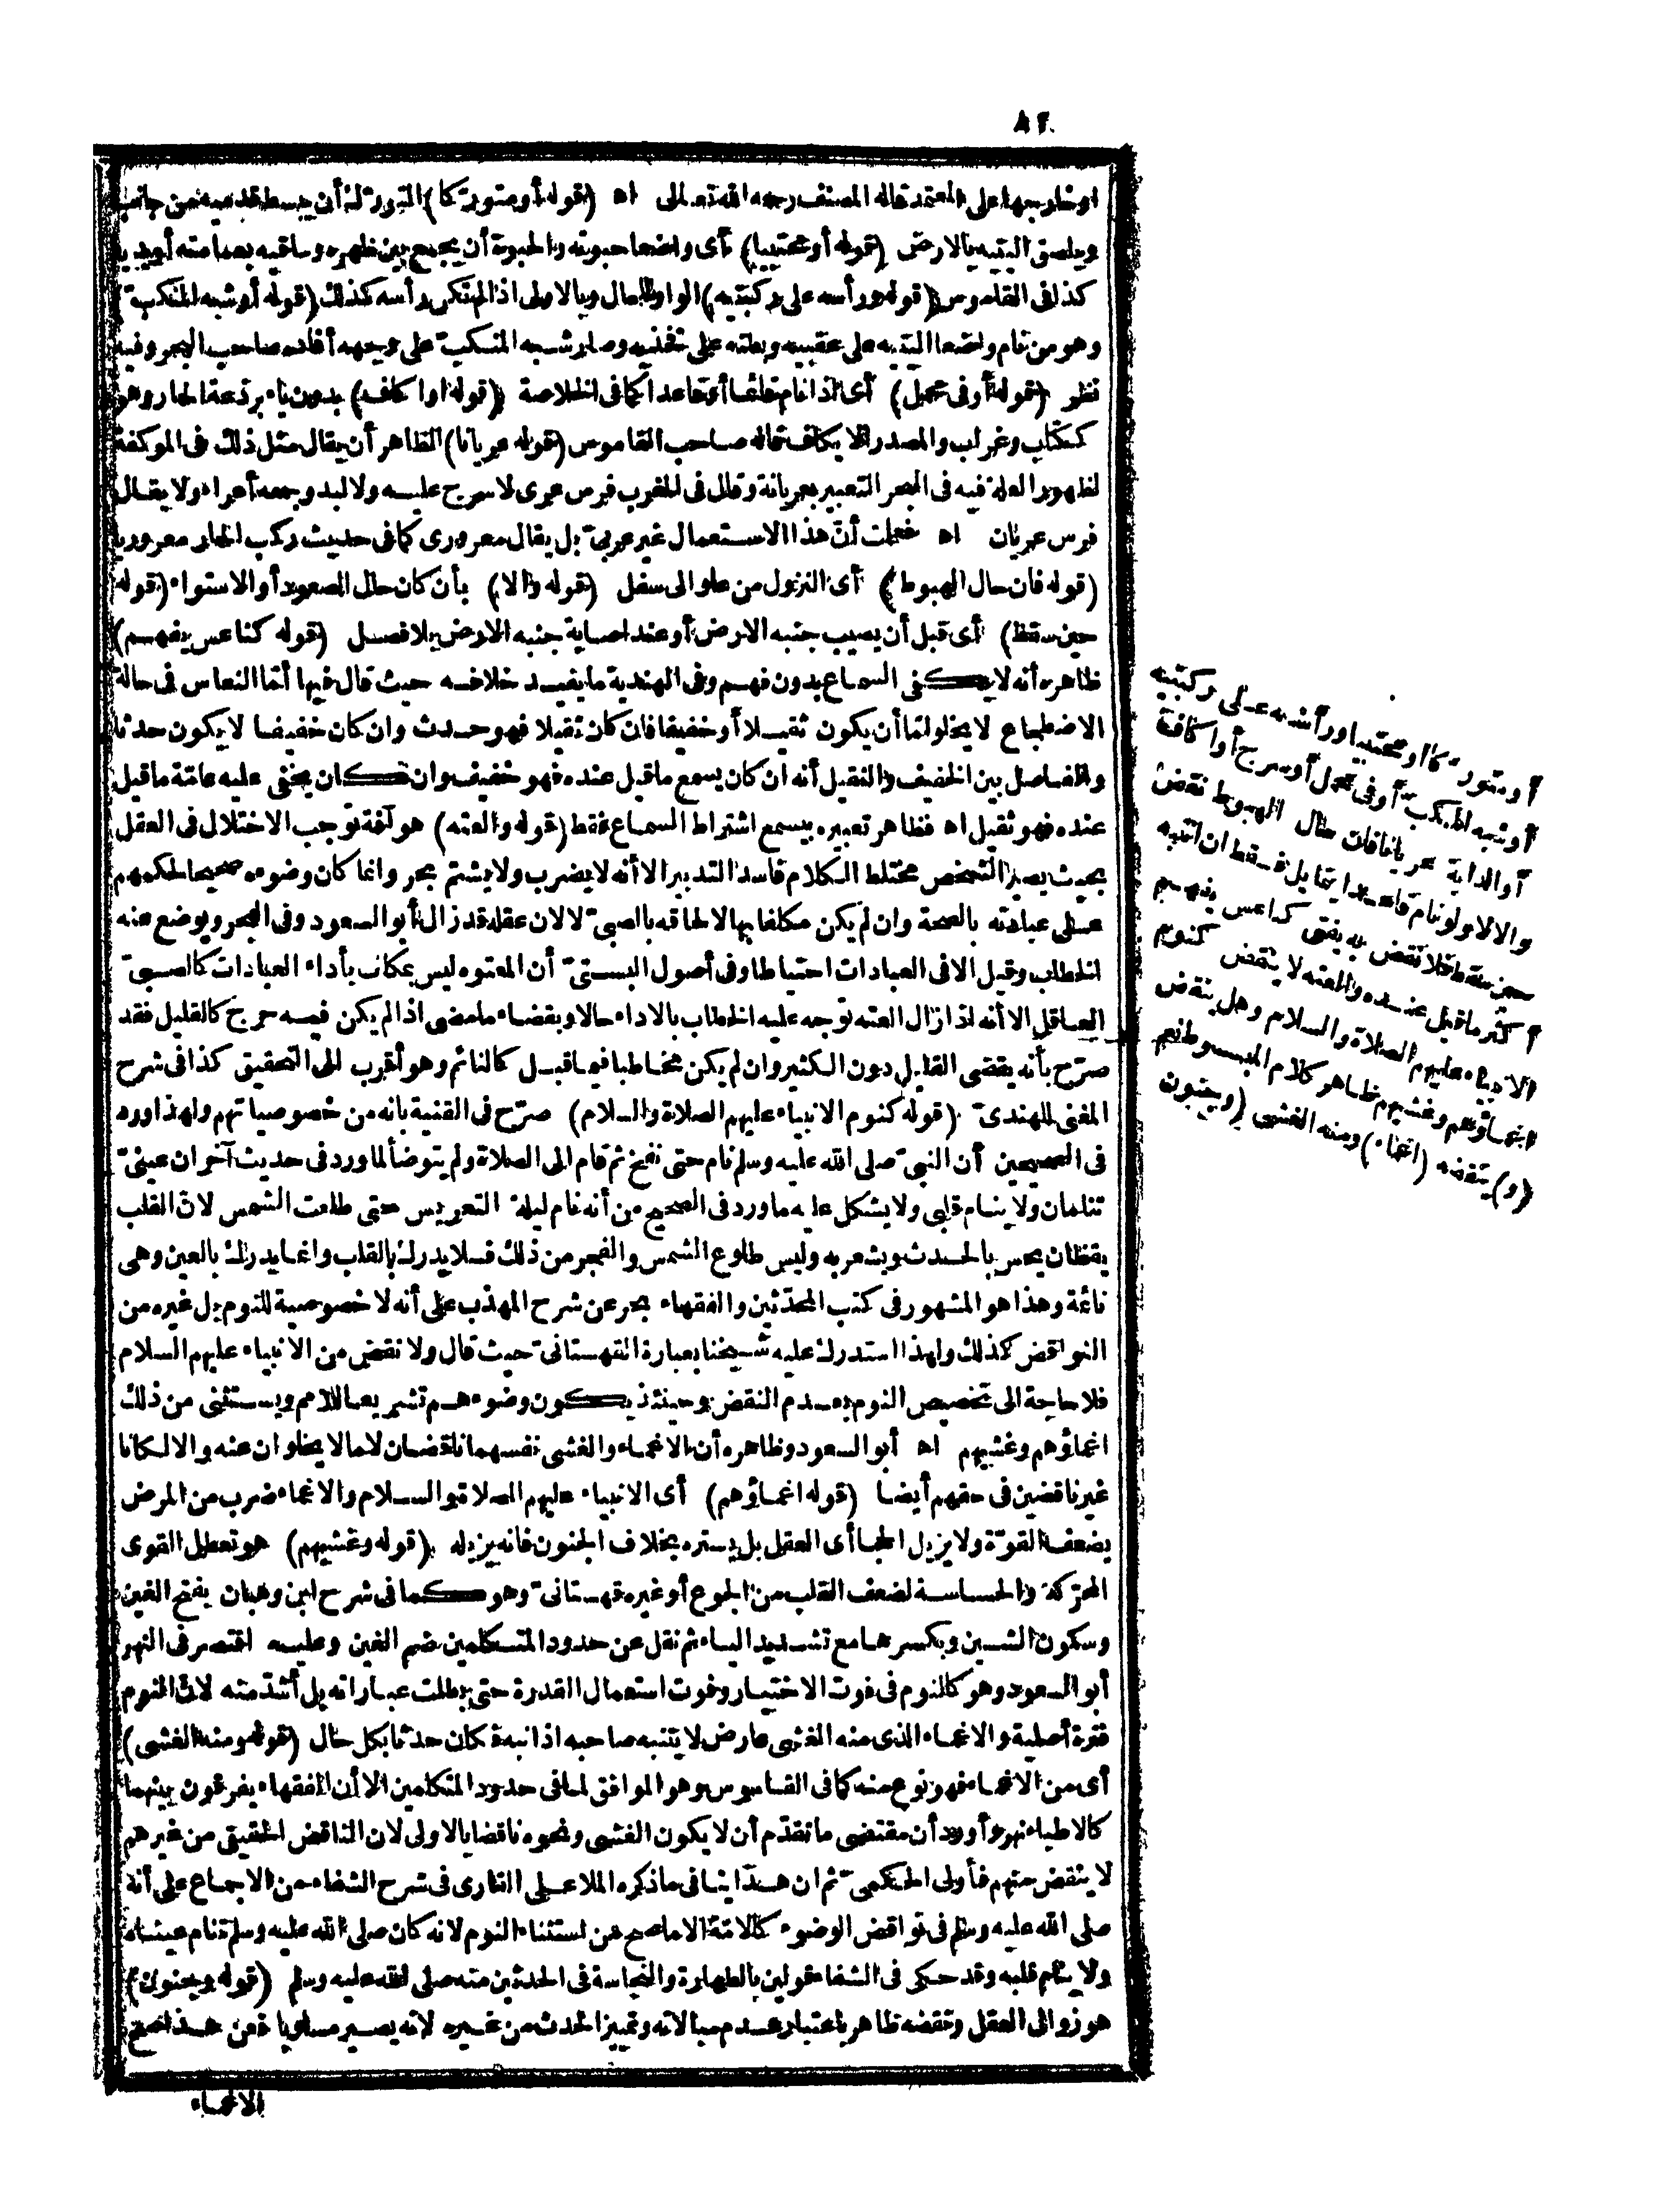 ٨٢
او خارجها على المعتمد قاله المصنف رحمه الله تعالى اه (قوله أو متوركا) التورك أن يبسط قدميه من جانب
ويلصق اليتيه بالارض (قوله أو محتبيا) أى واضعا حبوته والحبوة أن يجمع بين ظهره وساقيه بعمامته أو يديه
كذا فى القاموس (قوله ورأسه على ركبتيه) الواو للحال وبالاولى اذا لم تكن رأسه كذلك (قوله أو شبه المنكب)
وهو من نام واضعا اليتيه على عقبيه وبطنه على فخذيه وصار شبه المنكب على وجهه أفاده صاحب البحر وفيه
نظر (قوله أو فى محمل) أى اذا نام قائما أو قاعدا كما فى الخلاصة (قوله او اكاف) بدون ياء برذعة الحمار وهو
ككتاب وغراب والمصدر الايكاف قاله صاحب القاموس (قوله عريانا) الظاهر أن يقال مثل ذلك فى الموكفة
لظهور العلة فيه فى البحر التعبير بعريانة وقال فى المغرب فرس عرى لا سرج عليه ولا لبد وجمعه أعراء ولا يقال
فرس عريان اه فعلمت أن هذا الاستعمال غير عربى بل يقال معرورى كما فى حديث ركب الحمار معروريا
(قوله فان حال الهبوط) أى النزول من علو الى سفل (قوله والا) بأن كان حال الصعود أو الاستواء (قوله
حين سقط) أى قبل أن يصيب جنبه الارض أو عند اصابة جنبه الارض بلا فصل (قوله كناعس يفهم)
ظاهره أنه لا يكفى السماع بدون فهم وفى الهندية ما يفيد خلافه حيث قال فيها أما النعاس فى حالة
الاضطجاع لا يخلو اما أن يكون ثقيلا أو خفيفا فان كان ثقيلا فهو حدث وان كان خفيفا لا يكون حدثا
والفاصل بين الخفيف والثقيل أنه ان كان يسمع ما قيل عنده فهو خفيف وان كان يخفى عليه عامة ما قيل
عنده فهو ثقيل اه فظاهر تعبيره بيسمع اشتراط السماع فقط (قوله والعته) هو آفة توجب الاختلال فى العقل
بحيث يصير الشخص مختلط الكلام فاسد التدبير الا أنه لا يضرب ولا يشتم بحر وانما كان وضوءه صحيحا لحكمهم
على عبادته بالصحة وان لم يكن مكلفا بها لالحاقه بالصبى لا لان عقله قد زال أبو السعود وفى البحر ويوضع عنه
الخطاب وقيل الا فى العبادات احتياطا وفى أصول البستى أن المعتوه ليس بمكلف بأداء العبادات كالصبى
العاقل الا أنه اذا زال العته توجه عليه الخطاب بالاداء حالا وبقضاء ما مضى اذا لم يكن فيه حرج كالقليل فقد
صرح بأنه يقضى القليل دون الكثير وان لم يكن مخاطبا فيما قبل كالنائم وهو أقرب الى التحقيق كذا فى شرح
المغنى للهندى (قوله كنوم الانبياء عليهم الصلاة والسلام) صرح فى القنية بانه من خصوصياتهم ولهذا ورد
فى الصحيحين أن النبى صلى الله عليه وسلم نام حتى نفخ ثم قام الى الصلاة ولم يتوضأ لما ورد فى حديث آخر ان عينى
تنامان ولا ينام قلبى ولا يشكل عليه ما ورد فى الصحيح من أنه نام ليلة التعريس حتى طلعت الشمس لان القلب
يقظان يحس بالحدث ويشعر به وليس طلوع الشمس والفجر من ذلك فلا يدرك بالقلب وانما يدرك بالعين وهى
نائمة وهذا هو المشهور فى كتب المحدثين والفقهاء بحر عن شرح المهذب على أنه لا خصوصية للنوم بل غيره من
النواقض كذلك ولهذا استدرك عليه شيخنا بعبارة القهستانى حيث قال ولا نقض من الانبياء عليهم السلام
فلا حاجة الى تخصيص النوم بعدم النقض وحينئذ يكون وضوءهم تشريعا للامم ويستثنى من ذلك
اغماؤهم وغشيهم اه أبو السعود وظاهره أن الاغماء والغشى نفسهما ناقضان لا ما لا يخلوان عنه والا لكانا
غير ناقضين فى حقهم أيضا (قوله اغماؤهم) أى الانبياء عليهم الصلاة والسلام والاغماء ضرب من المرض
يضعف القوة ولا يزيل الحجا أى العقل بل يستره بخلاف الجنون فانه يزيله (قوله وغشيهم) هو تعطل القوى
المحركة والحساسة لضعف القلب من الجوع أو غيره قهستانى وهو كما فى شرح ابن وهبان بفتح الغين
وسكون الشين وبكسرها مع تشديد الياء ثم نقل عن حدود المتكلمين ضم الغين وعليه اقتصر فى النهر
أبو السعود وهو كالنوم فى فوت الاختيار وفوت استعمال القدرة حتى بطلت عباراته بل أشد منه لان النوم
فترة أصلية والاغماء الذى منه الغشى عارض لا يتنبه صاحبه اذا نبه فكان حدثا بكل حال (قوله ومنه الغشى)
أى من الاغماء فهو نوع منه كما فى القاموس وهو الموافق لما فى حدود المتكلمين الا أن الفقهاء يفرقون بينهما
كالاطباء نهر وأورد أن مقتضى ما تقدم أن لا يكون الغشى ونحوه ناقضا بالاولى لان الناقض الحقيقى من غيرهم
لا ينقض منهم فأولى الحكمى ثم ان هذا ينافى ما ذكره الملا على القارى فى شرح الشفاء من الاجماع على أنه
صلى الله عليه وسلم فى نواقض الوضوء كالامة الا ما صح من استثناء النوم لانه كان صلى الله عليه وسلم تنام عيناه
ولا ينام قلبه وقد حكى فى الشفاء قولين بالطهارة والنجاسة فى الحدثين منه صلى الله عليه وسلم (قوله وجنون)
هو زوال العقل ونقضه ظاهر باعتبار عدم مبالاته وتمييز الحدث من غيره لانه يصير مساويا فمن هذا صح
الاغماء
أو متوركا او محتبيا ورأسه على ركبتيه
أو شبه المنكب أو فى محمل أو سرج أو اكافة
أو الدابة عريانا فان حال الهبوط نقض
والا لا ولو نام قاعدا يتمايل فسقط ان انتبه
حين سقط فلا نقض به يفتى كناعس يفهم
أكثر ما قيل عنده والعته لا ينقض كنوم
الانبياء عليهم الصلاة والسلام وهل ينقض
اغماؤهم وغشيهم ظاهر كلام المبسوط نعم
(و) ينقضه (اغماء) ومنه الغشى (وجنون